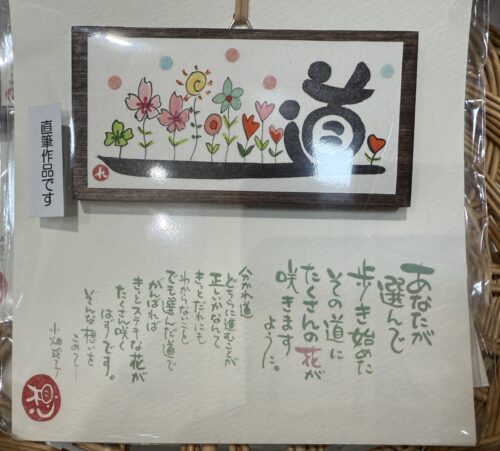 道
れ
直筆作品です
あなたが
選んで
歩き始めた
その道に
たくさんの花が
咲きます
ように。
分かれ道
どちらに進むことが
正しいかなんて
きっとだれにも
わからないこと
でも選んだ道で
がんばれば
きっとステキな花が
たくさん咲く
はずです。
そんな想いを
こめて…
小畑
想